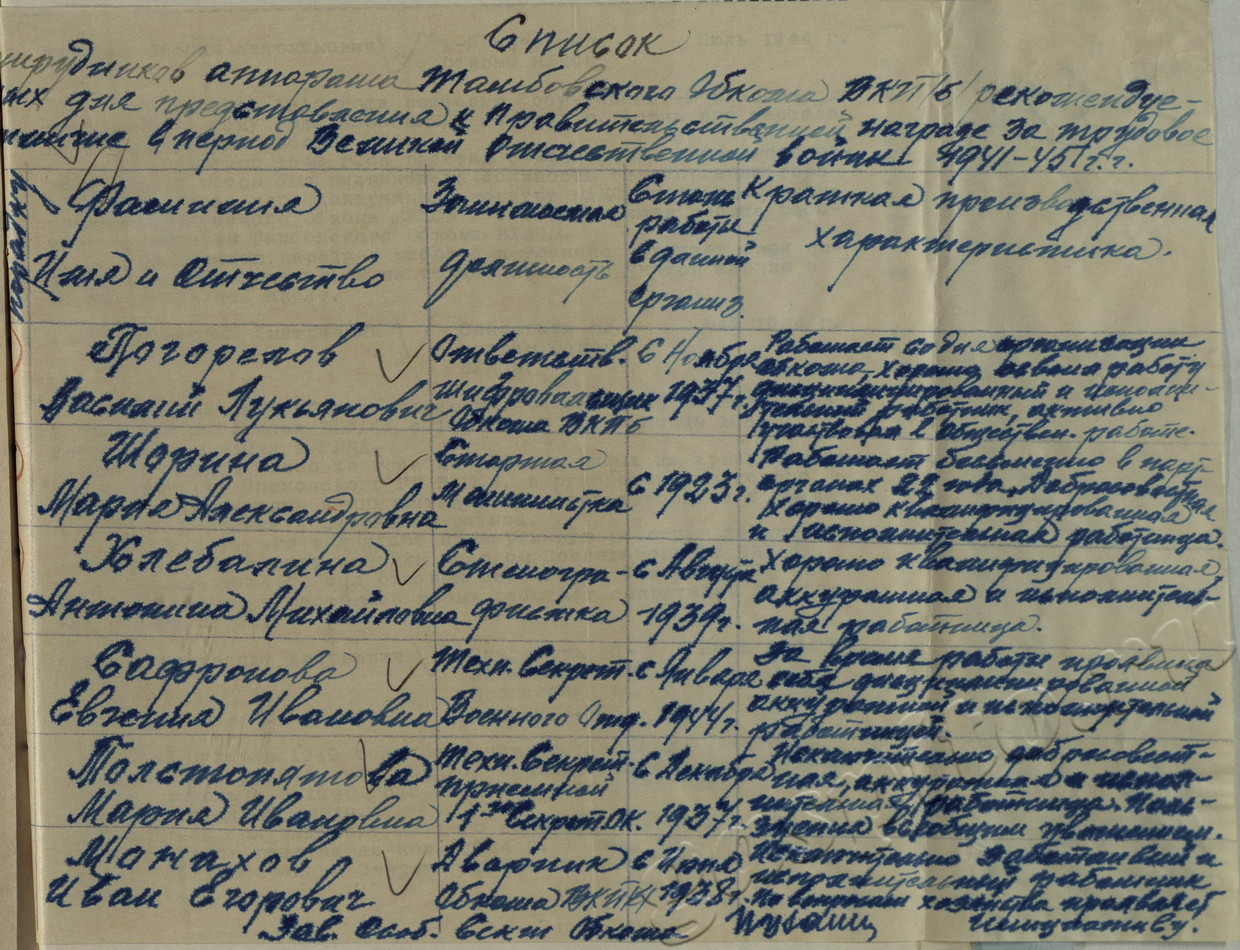 Список
сотрудников аппарата Тамбовского Обкома ВКП/б/ рекомендуе-
мых для представления к Правительственной награде за трудовое
отличие в период Великой Отечественной войны 1941-45 г.г.
Фамилия
Имя и Отчество
Занимаемая
должность
Стаж
работы
в данной
организ.
Краткая производственная
характеристика.
Погорелов
Василий Лукьянович
Ответств.
шифровальщик
Обкома ВКПб
С Ноября
1937 г.
Работает со дня организации
обкома, хорошо освоил работу
дисциплинированный и исполни-
тельный работник, активно
участвовал в обществен. работе.
Шорина
Мария Александровна
Старшая
Машинистка
С 1923 г.
Работает бессменно в парт-
органах 22 года. Добросовестная
хорошо квалифицированная
и исполнительная работница.
Хлебалина
Антонина Михайловна
Стеногра-
фистка
С Августа
1939 г.
Хорошо квалифицированная,
аккуратная и исполнитель-
ная работница.
Сафронова
Евгения Ивановна
Техн. Секрет.
Военного Отд.
С Января
1944 г.
За время работы проявила
себя дисциплинированной
аккуратной и исполнительной
работницей.
Толстопятова
Мария Ивановна
Техн. Секрет.
приемной
1го Секрет. Ок.
С Декабря
1937 г.
Исключительно добросовест-
ная, аккуратная и испол-
нительная работница. Поль-
зуется всеобщим уважением.
Монахов
Иван Егорович
Обкома ВКП(б)
С Июня
1938 г.
Исключительно заботливый и
исполнительный работник
По вопросам хозяйства проявляет
инициативу.
Зав. Особ. Сект. Обкома